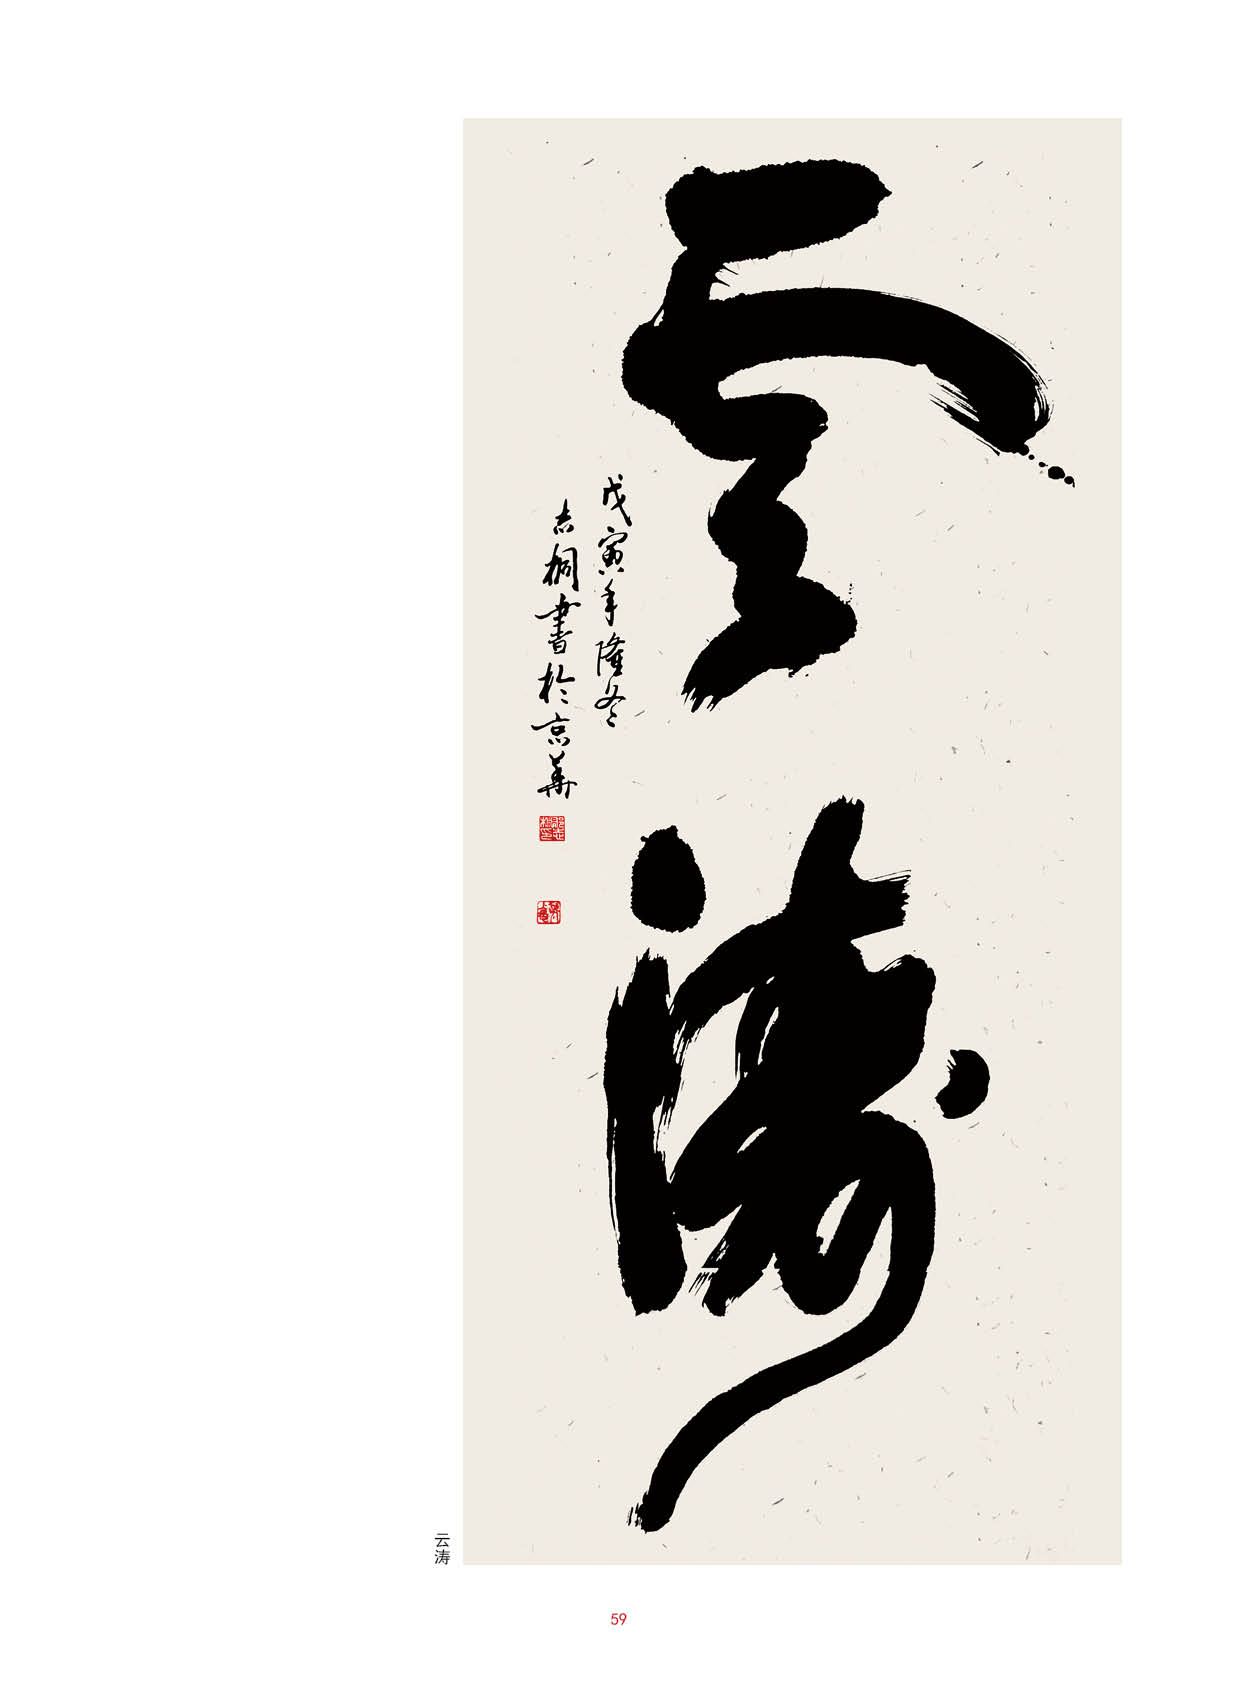 雲濤
戊寅年隆冬
志桐書於京華
云涛
59